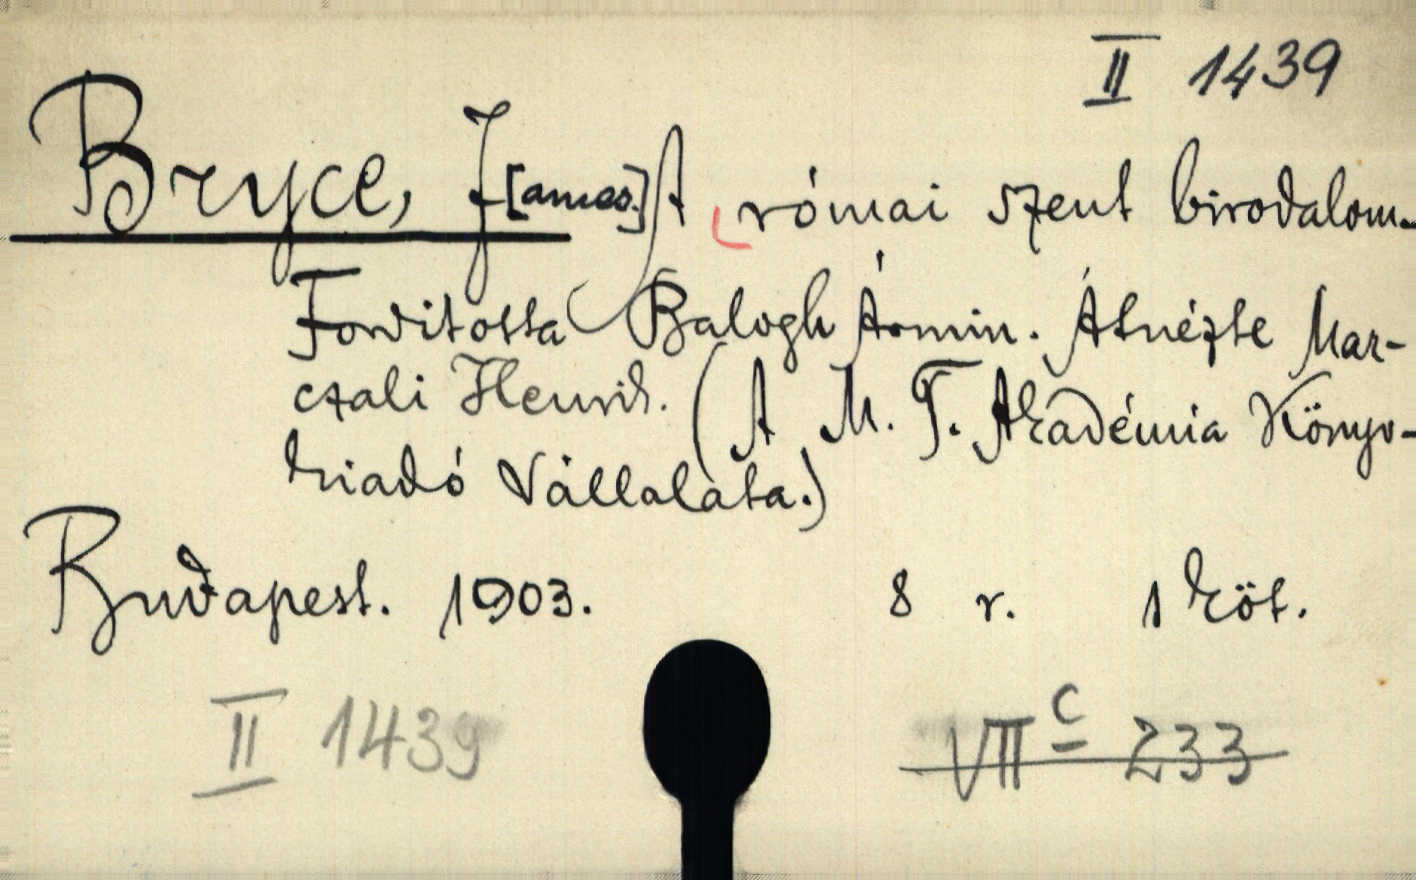 II 1439
Bryce, J[ames.] A római szent birodalom.
Fordította Balogh Ármin. Átnézte Mar-
czali Henrik. (A M. T. Akadémia Könyv-
kiadó Vállalata.)
Budapest. 1903. 8 r. 1 köt.
II 1439 VII c 233